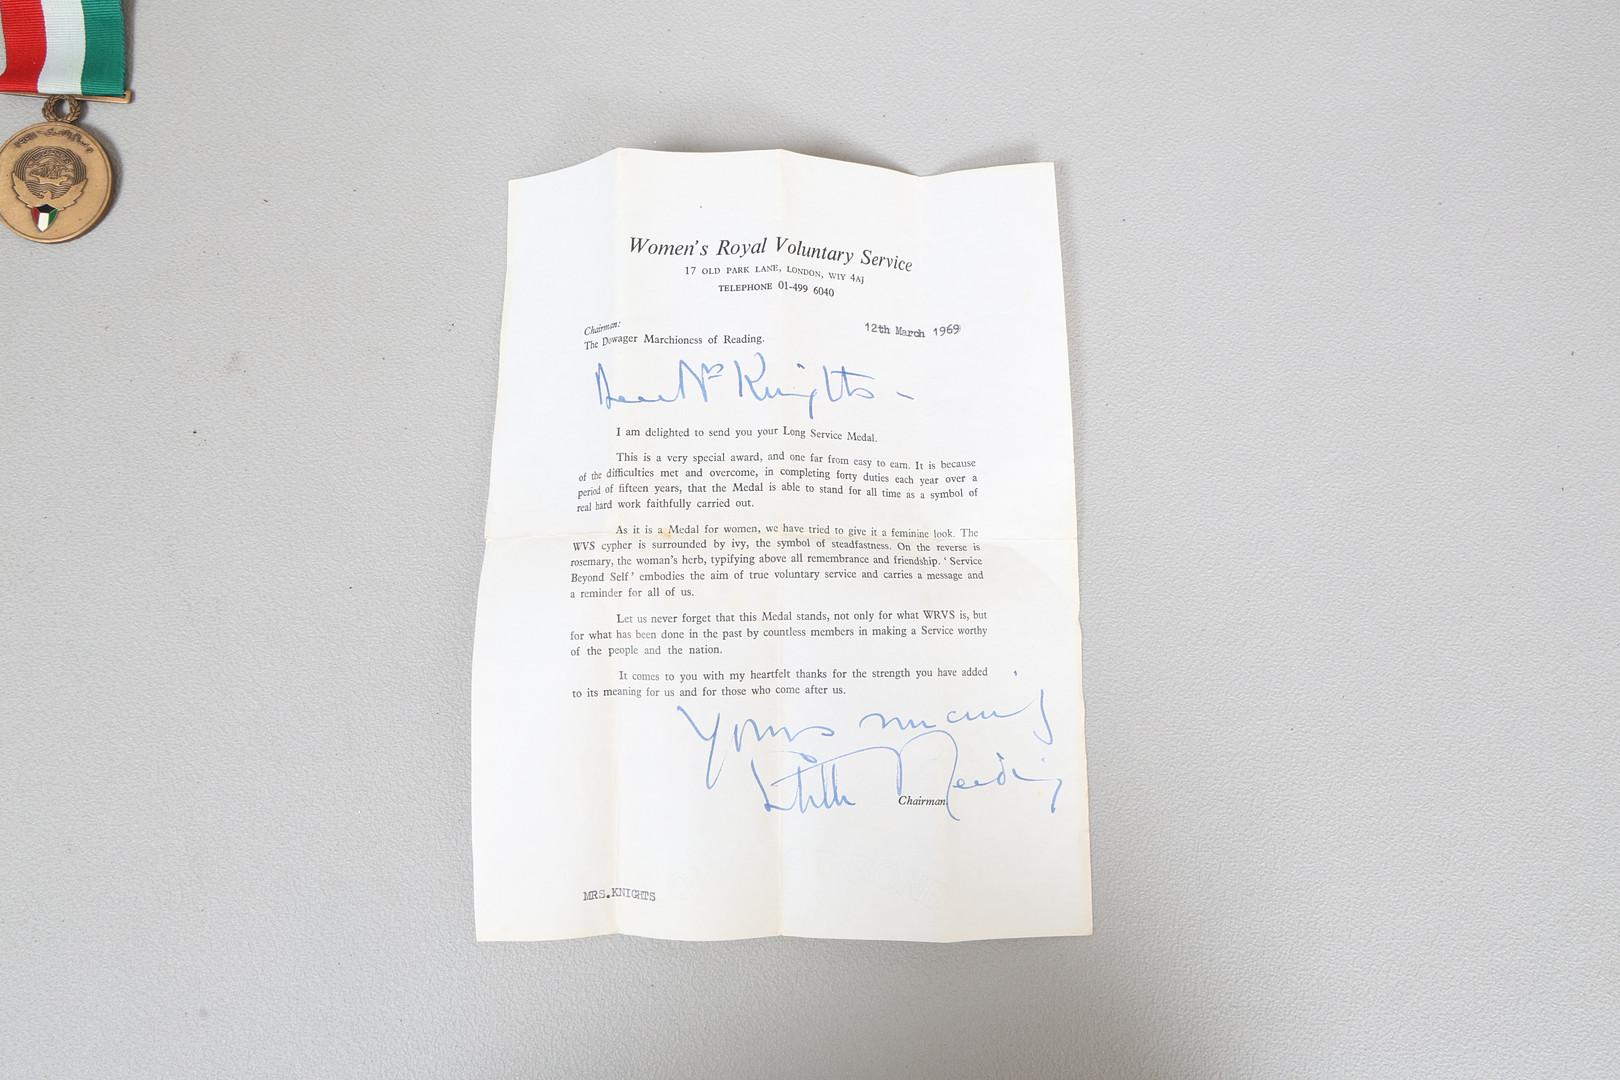 Women's Royal Voluntary Service
17 OLD PARK LANE, LONDON, W1Y 4AJ
TELEPHONE 01-499 6040
Chairman:
The Dowager Marchioness of Reading.
12th March 1969
Dear Mrs Knights -
I am delighted to send you your Long Service Medal.
This is a very special award, and one far from easy to earn. It is because
of the difficulties met and overcome, in completing forty duties each year over a
period of fifteen years, that the Medal is able to stand for all time as a symbol of
real hard work faithfully carried out.
As it is a Medal for women, we have tried to give it a feminine look. The
WVS cypher is surrounded by ivy, the symbol of steadfastness. On the reverse is
rosemary, the woman's herb, typifying above all remembrance and friendship. ‘ Service
Beyond Self ’ embodies the aim of true voluntary service and carries a message and
a reminder for all of us.
Let us never forget that this Medal stands, not only for what WRVS is, but
for what has been done in the past by countless members in making a Service worthy
of the people and the nation.
It comes to you with my heartfelt thanks for the strength you have added
to its meaning for us and for those who come after us.
Yours
Reading
Chairman.
MRS.KNIGHTS